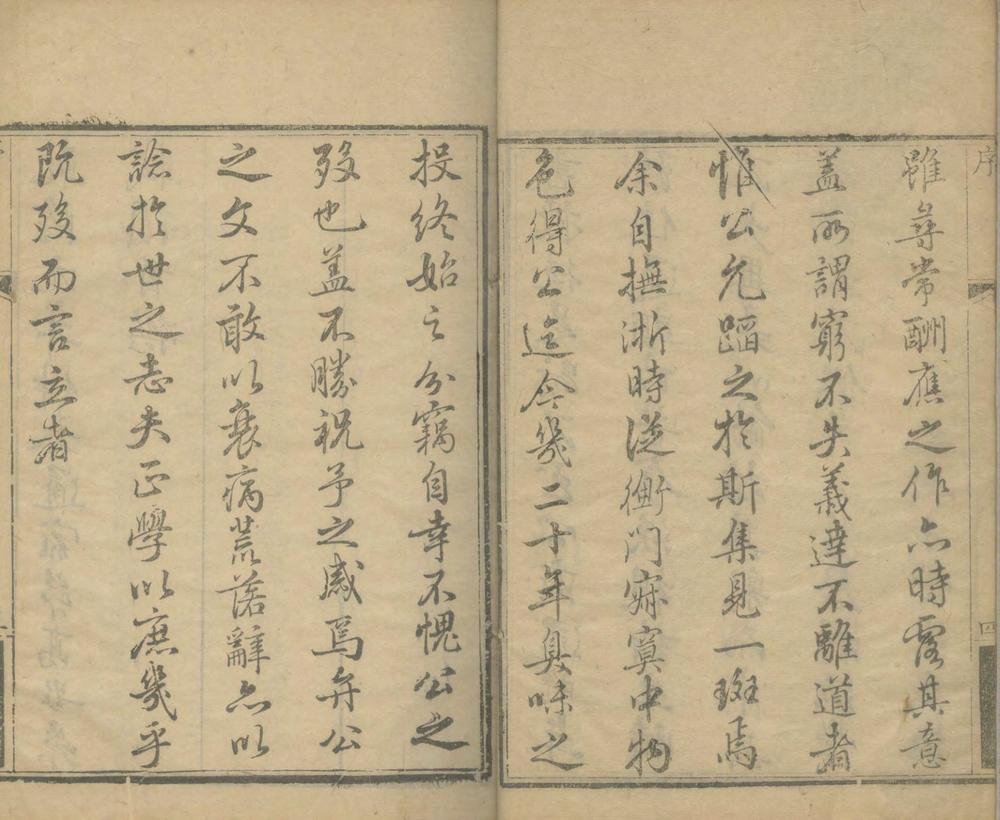 序
四
雖尋常酬應之作亦時露其意
蓋所謂窮不失義達不離道者
惟公允蹈之於斯集見一斑焉
余自撫浙時從衡門寂寞中物
色得公迄今幾二十年臭味之
投終始之分竊自幸不愧公之
歿也蓋不勝祝予之感焉弁公
之文不敢以衰病荒落辭亦以
諗於世之志夫正學以庶幾乎
既歿而言立者